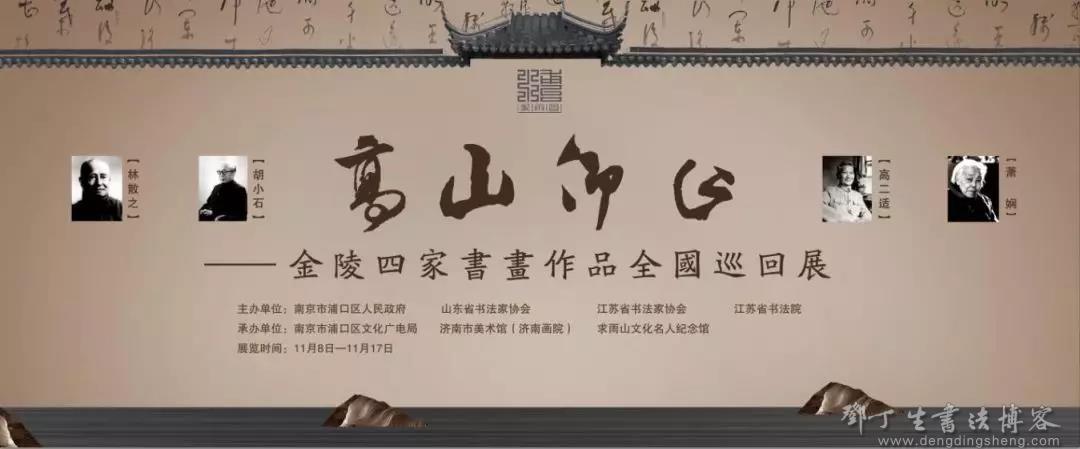 高山仰止
【林散之】
【胡小石】
【高二适】
【萧 娴】
——金陵四家書畫作品全國巡回展
主办单位：南京市浦口区人民政府 山东省书法家协会 江苏省书法家协会 江苏省书法院
承办单位：南京市浦口区文化广电局 济南市美术馆（济南画院） 求雨山文化名人纪念馆
展览时间：11月8日—11月17日
鄧丁生书法博客
www.dengdingsheng.com